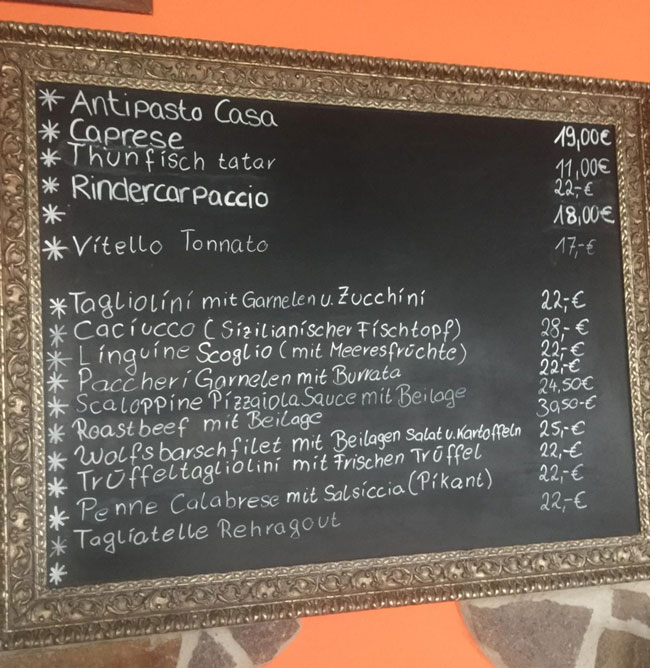 * Antipasto Casa 19,00€
* Caprese 11,00€
* Thunfisch tatar 22,-€
* Rindercarpaccio 18,00€
*
* Vitello Tonnato 17,-€
* Tagliolini mit Garnelen u. Zucchini 22,-€
* Caciucco (Sizilianischer Fischtopf) 28,-€
* Linguine Scoglio (mit Meeresfrüchte) 22,-€
* Paccheri Garnelen mit Burrata 22,-€
* Scaloppine Pizzaiola Sauce mit Beilage 24,50€
* Roastbeef mit Beilage 30,50-€
* Wolfsbarschfilet mit Beilagen Salat u. Kartoffeln 25,-€
* Trüffeltagliolini mit Frischen Trüffel 22,-€
* Penne Calabrese mit Salsiccia (Pikant) 22,-€
* Tagliatelle Rehragout 22,-€
*